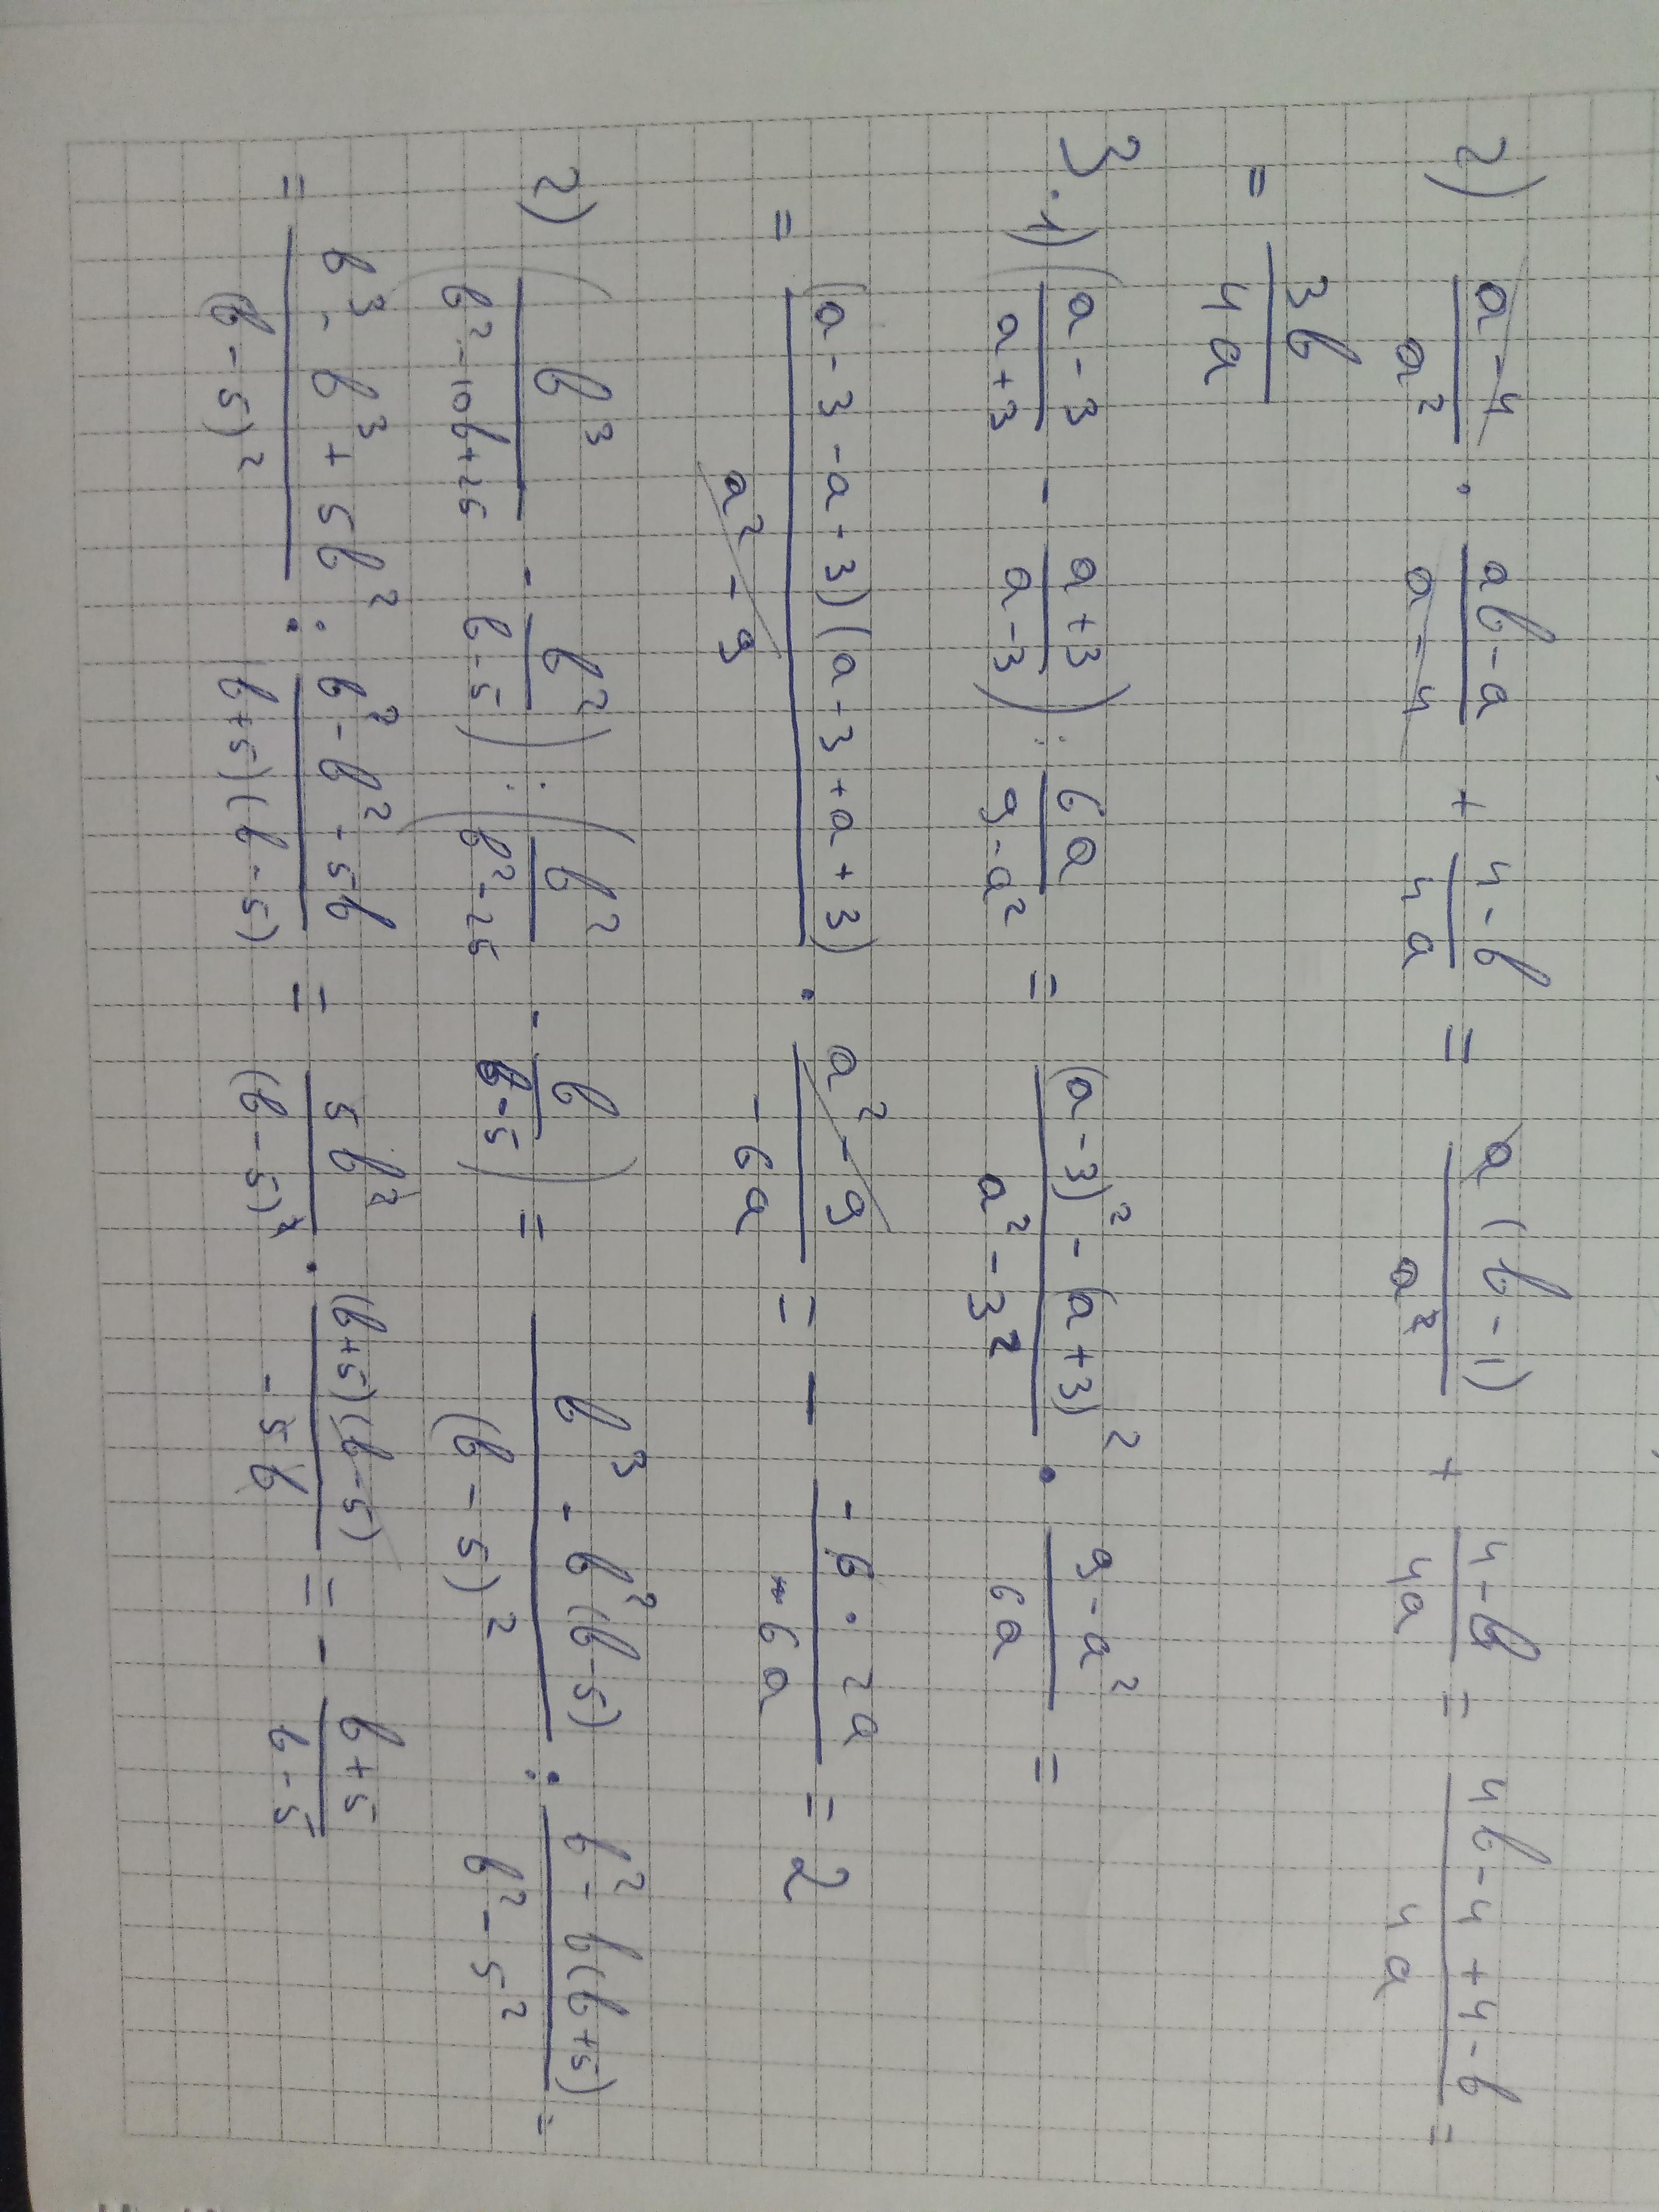 2) (a-4)/a² · (ab-a)/(a-4) + (4-b)/4a = a(b-1)/a² + (4-b)/4a = (4b-4+4-b)/4a =
= 3b/4a
3. 1) ((a-3)/(a+3) - (a+3)/(a-3)) : 6a/(9-a²) = ((a-3)² - (a+3)²)/(a²-3²) · (9-a²)/6a =
= (a-3-a+3)(a+3+a+3)/(a²-9) · (a²-9)/(-6a) = - (-6·2a)/(-6a) = 2
2) (b³/(b²-10b+25) - b²/(b-5)) : (b²/(b²-25) - b/(b-5)) = (b³-b²(b-5))/(b-5)² : (b²-b(b+5))/(b²-5²) =
= (b³-b³+5b²)/(b-5)² : (b²-b²-5b)/(b+5)(b-5) = 5b²/(b-5)² · (b+5)(b-5)/(-5b) = - (b+5)/(b-5)